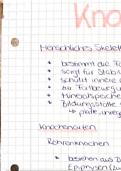 Kno
Menschliches Skelett
• bestimmt die
• sorgt für Stab
• schützt innere
• zur Fortbewegun
• Mineralspeiche
• Bildungsstätte
Knochenarten
Röhrenknochen
• bestehen aus D
Epiphysen